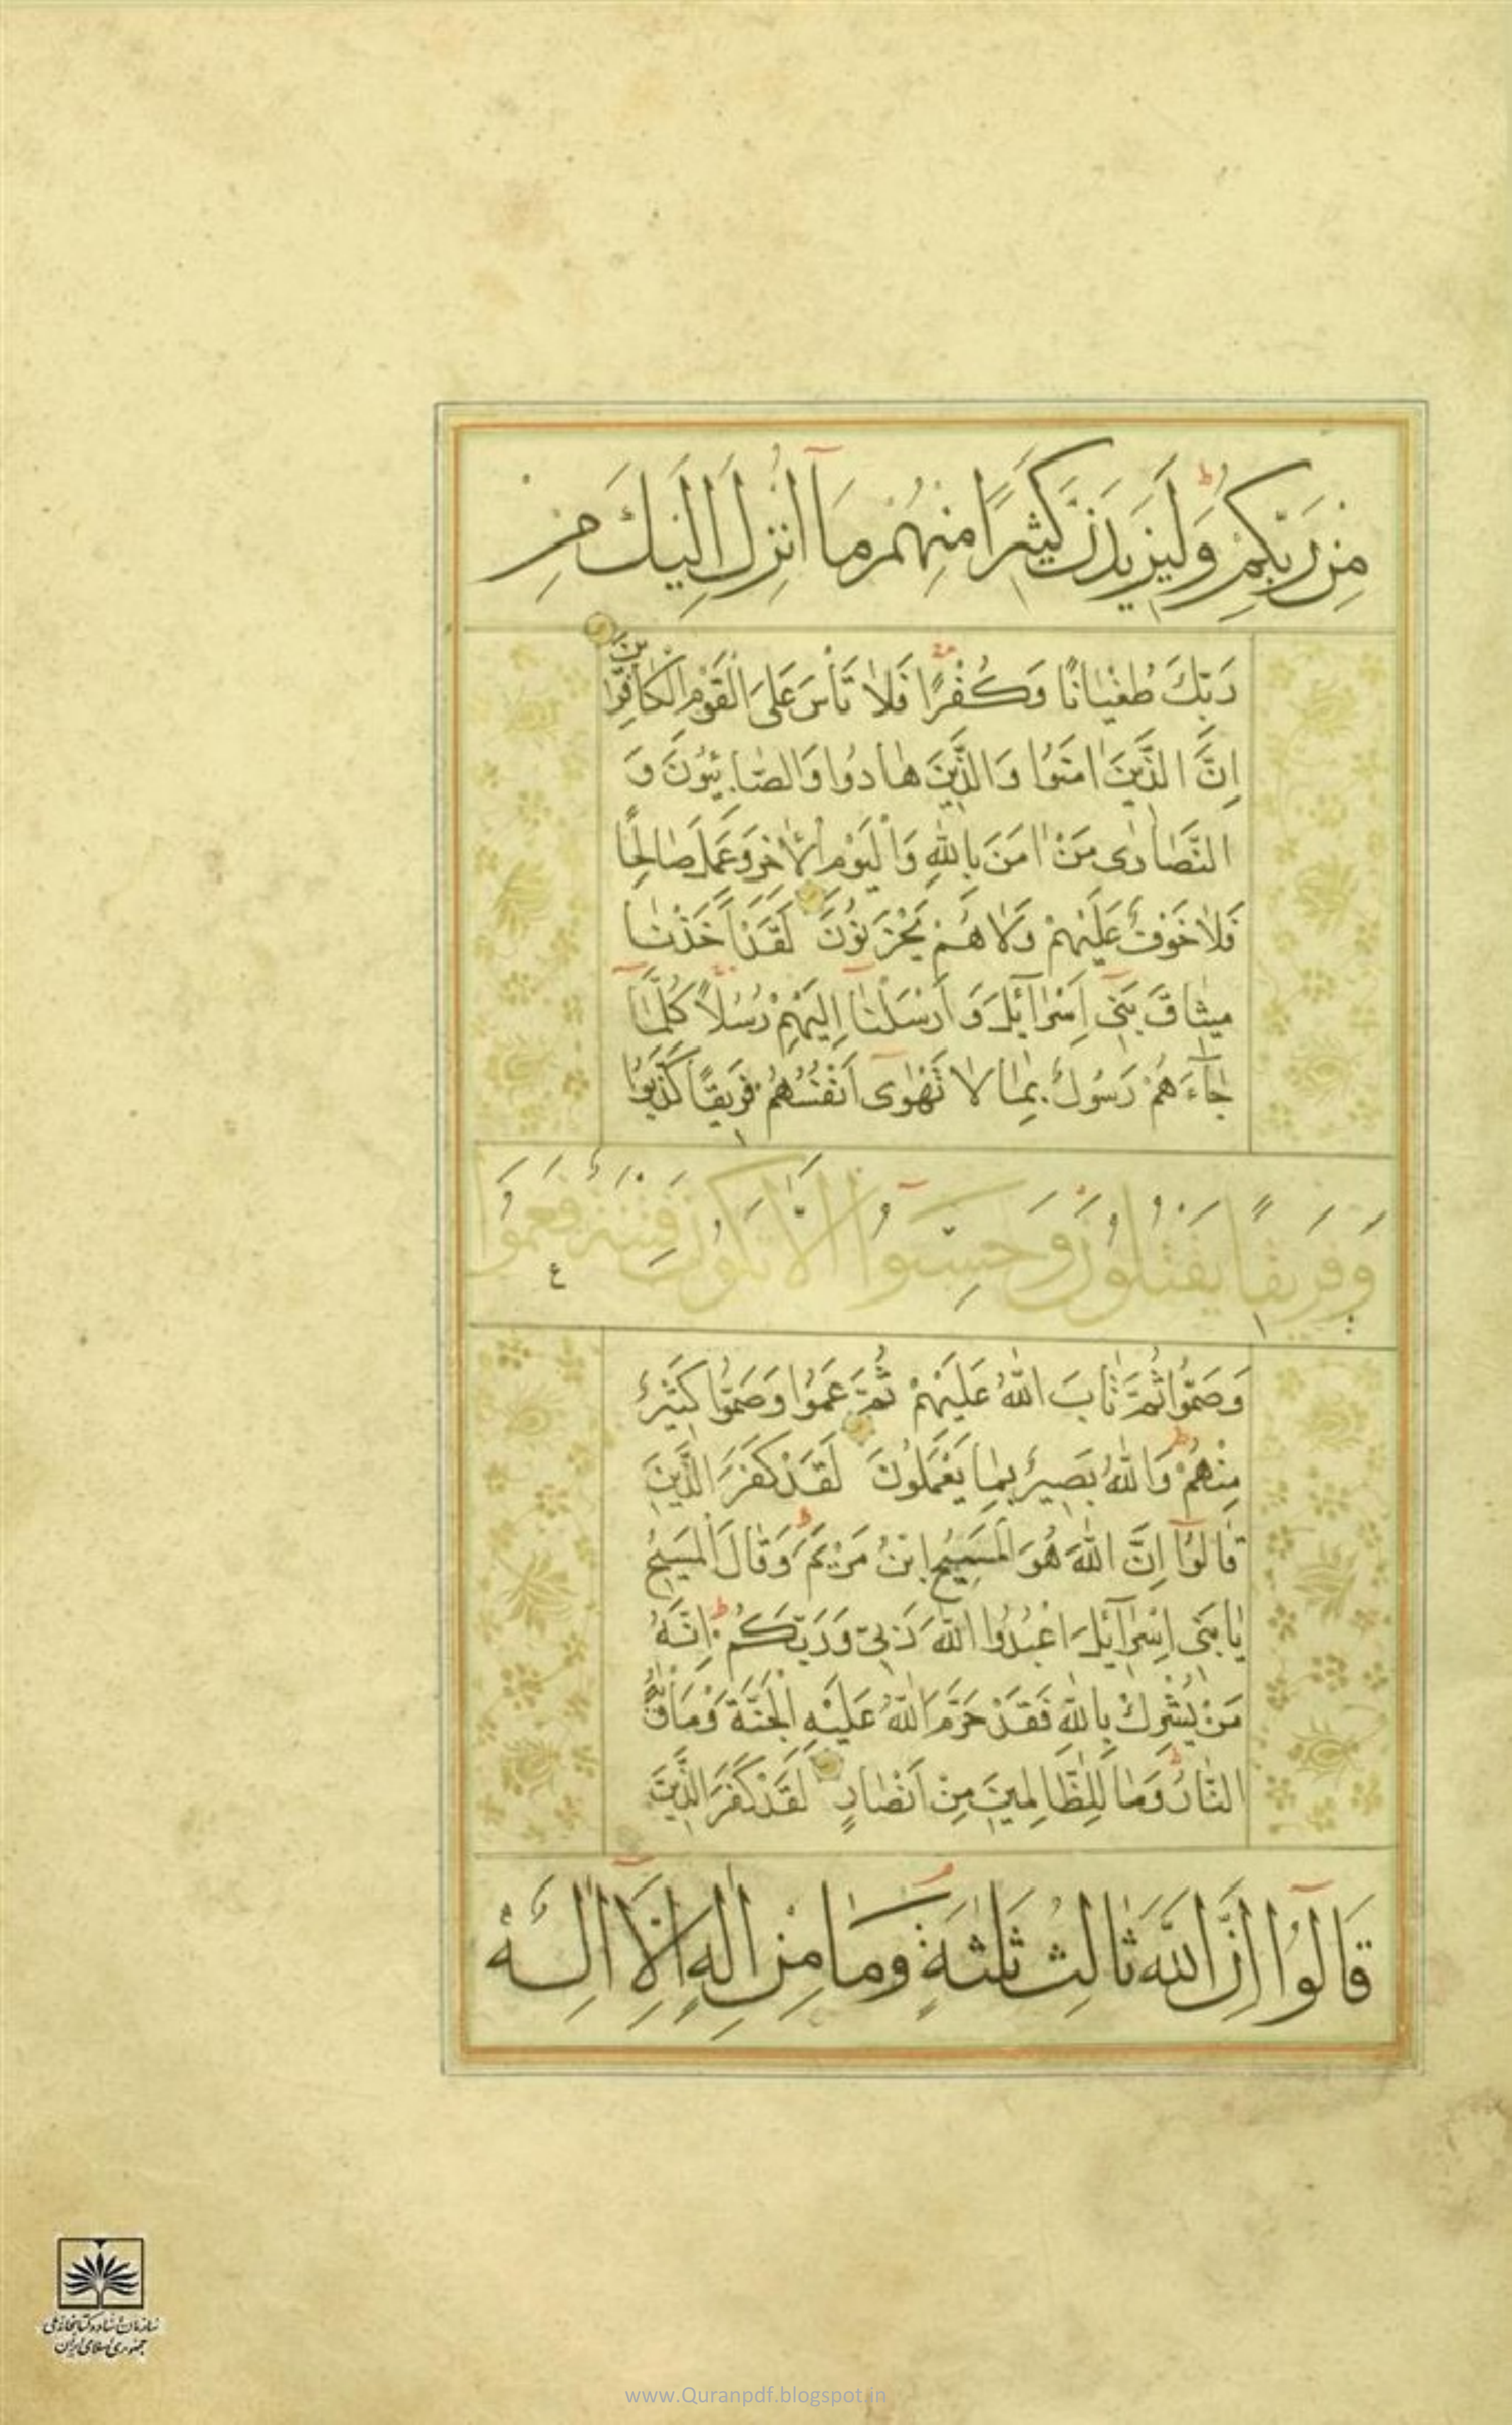 مِنْ رَبِّكُمْ وَلَيَزِيدَنَّ كَثِيرًا مِنْهُمْ مَآ اُنْزِلَ اِلَيْكَ مِنْ
رَبِّكَ طُغْيَانًا وَكُفْرًا فَلَا تَأْسَ عَلَى الْقَوْمِ الْكَافِرِينَ
اِنَّ الَّذِينَ اٰمَنُوا وَالَّذِينَ هَادُوا وَالصَّابِئُونَ وَ
النَّصَارٰى مَنْ اٰمَنَ بِاللّٰهِ وَالْيَوْمِ الْاٰخِرِ وَعَمِلَ صَالِحًا
فَلَا خَوْفٌ عَلَيْهِمْ وَلَا هُمْ يَحْزَنُونَ لَقَدْ اَخَذْنَا
مِيثَاقَ بَنِى اِسْرَآئِلَ وَاَرْسَلْنَآ اِلَيْهِمْ رُسُلًا كُلَّمَا
جَآءَهُمْ رَسُولٌ بِمَا لَا تَهْوٰىٓ اَنْفُسُهُمْ فَرِيقًا كَذَّبُوا
وَفَرِيقًا يَقْتُلُونَ وَحَسِبُوٓا اَلَّا تَكُونَ فِتْنَةٌ فَعَمُوا
ع
وَصَمُّوا ثُمَّ تَابَ اللّٰهُ عَلَيْهِمْ ثُمَّ عَمُوا وَصَمُّوا كَثِيرٌ
مِنْهُمْ ط وَاللّٰهُ بَصِيرٌ بِمَا يَعْمَلُونَ لَقَدْ كَفَرَ الَّذِينَ
قَالُوٓا اِنَّ اللّٰهَ هُوَ الْمَسِيحُ ابْنُ مَرْيَمَ ط وَقَالَ الْمَسِيحُ
يَا بَنِى اِسْرَآئِلَ اعْبُدُوا اللّٰهَ رَبِّى وَرَبَّكُمْ ط اِنَّهُ
مَنْ يُشْرِكْ بِاللّٰهِ فَقَدْ حَرَّمَ اللّٰهُ عَلَيْهِ الْجَنَّةَ وَمَأْوٰيهُ
النَّارُ ط وَمَا لِلظَّالِمِينَ مِنْ اَنْصَارٍ لَقَدْ كَفَرَ الَّذِينَ
قَالُوٓا اِنَّ اللّٰهَ ثَالِثُ ثَلٰثَةٍ م وَمَا مِنْ اِلٰهٍ اِلَّآ اِلٰهٌ
سازمان اسناد و کتابخانه ملی
جمهوری اسلامی ایران
www.Quranpdf.blogspot.in